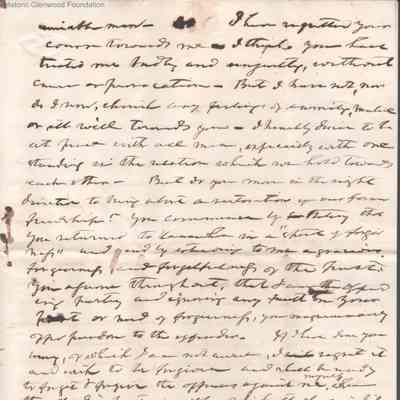 Historic Glenwood Foundation
amiable man — I have regretted your
course towards me — I think you have
treated me badly and unjustly, without
cause or provocation — But I have not, nor
do I now, cherish any feelings of enmity, malice
or ill will towards you — I humbly desire to be
at peace with all men, especially with one
standing in the relation which we hold towards
each other — But do you move in the right
direction to bring about a restoration of our former
friendship? You commence by stating that
you returned to in a "spirit of forgive
ness" and end by to me a gracious
forgiveness and forgetfulness of the past.
You assume throughout, that I am the offend
ing party and ignoring any fault on your
part or need of forgiveness, you
offer pardon to the offender. If I have done you
wrong, of which I am not aware, I regret it
and wish to be forgiven and shall be ready
to forget & forgive the offences against myself,